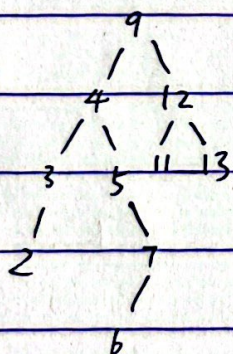 9
4 12
3 5 11 13
2 7
6